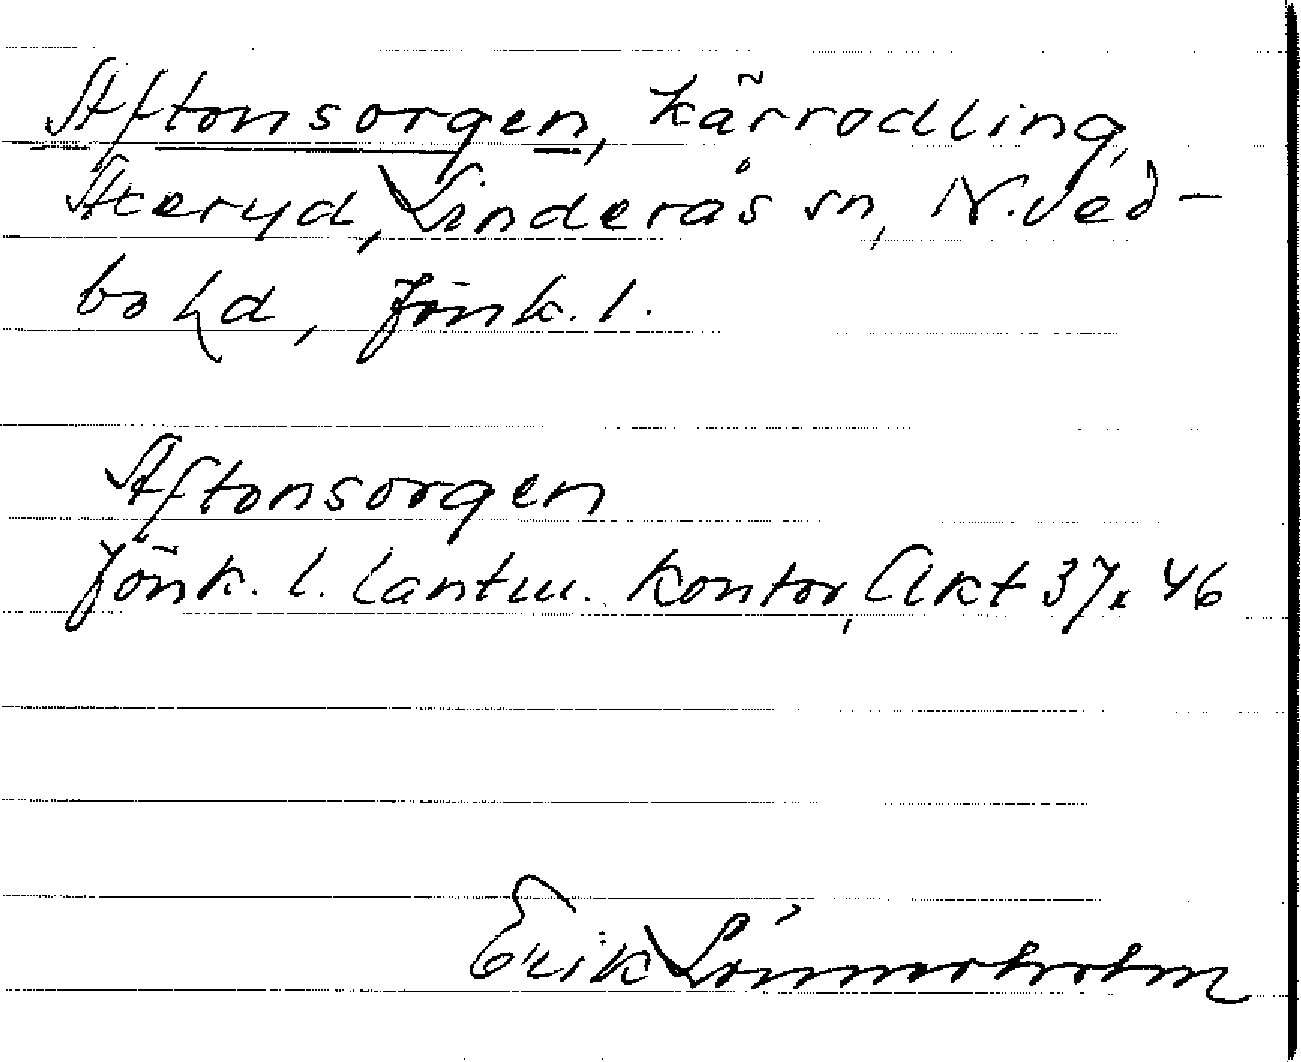 Aftonsorgen, kärrodling,
Åkeryd, Linderås sn, N. Ved-
bo hd, Jönk. l.
Aftonsorgen
Jönk. l. lantm. kontor, Akt 37, 46
Erik Lönnerholm